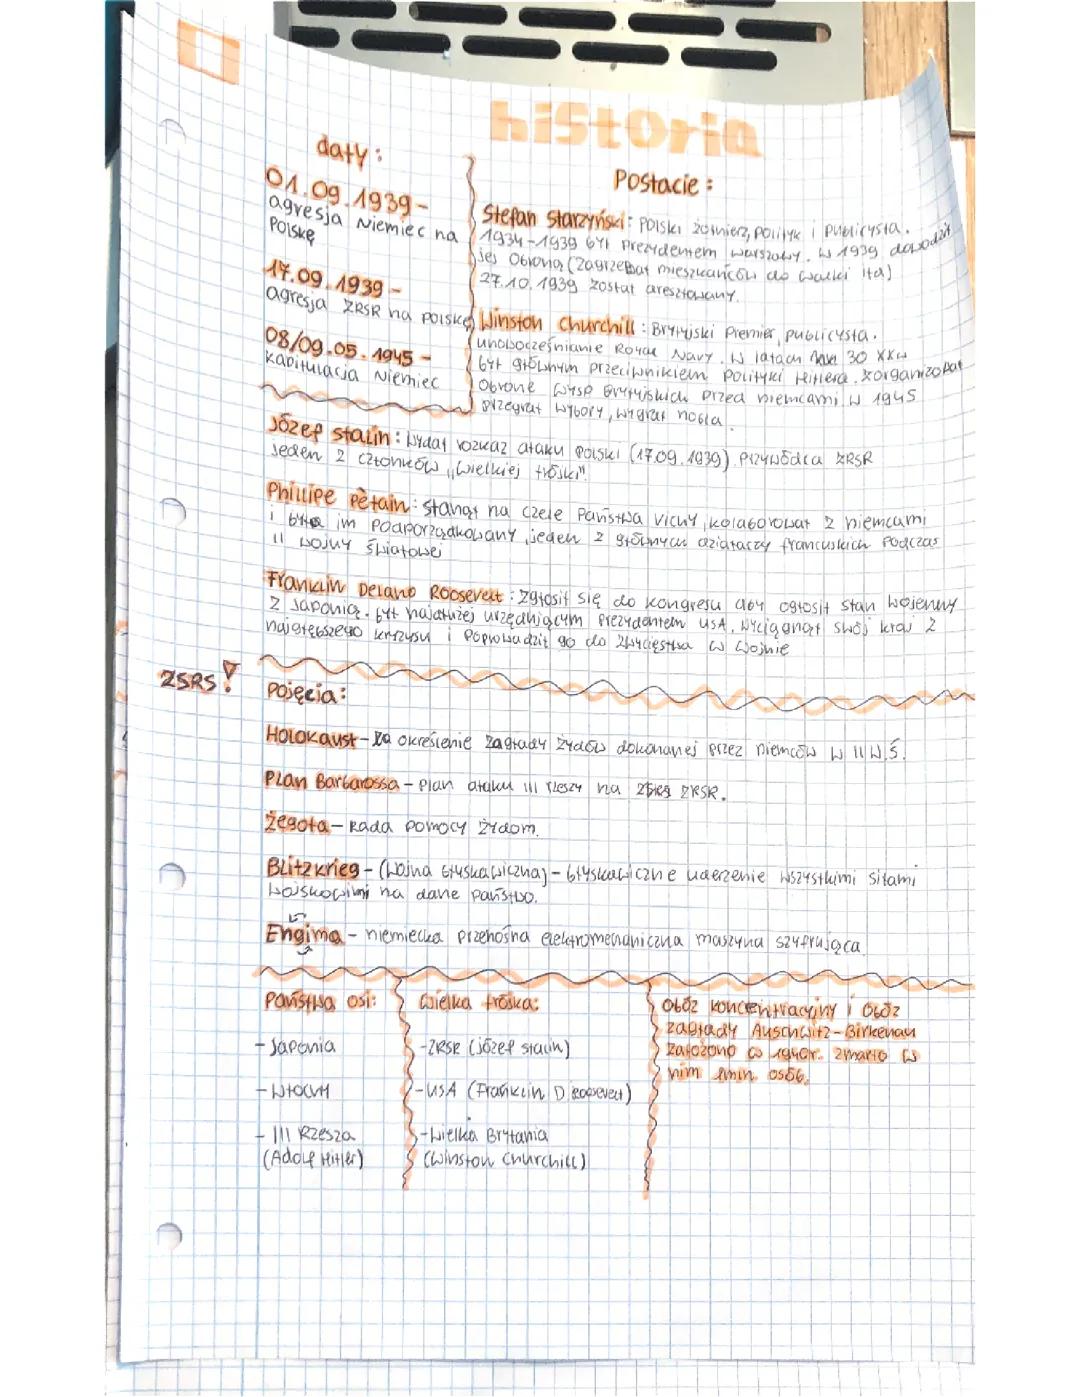 historia
daty:
01.09.1939-
agresja Niemiec na
Polskę
17.09.1939-
agresja ZRSR na Polskę
08/09.05.1945-
kapitulacja Niemiec
Postacie:
Stefan Starzyński: Polski żołnierz, polityk i publicysta.
1934-1939 był prezydentem warszawy. W 1939 dowodził
jej obroną (zagrzebał mieszkańców do walki itd)
27.10.1939 został aresztowany.
Winston Churchill: Brytyjski Premier, publicysta.
unowocześnianie Royal Navy. W latach 30 XXw
był głównym przeciwnikiem polityki Hitlera. Zorganizował
Obronę wysp Brytyjskich przed niemcami. W 1945
przegrał wybory, wygrał nobla.
Józef Stalin: Wydał rozkaz ataku polski (17.09.1939). Przywódca ZRSR
jeden z członków „Wielkiej trójki".
Phillipe Pètain: stanął na czele Państwa Vichy, kolaborował z niemcami
i był im podporządkowany, jeden z głównych działaczy francuskich podczas
II wojny światowej
Franklin Delano Roosevelt: zgłosił się do kongresu aby ogłosił stan wojenny
z Japonią. był najdłużej urzędującym prezydentem USA. Wyciągnął swój kraj z
najgłębszego kryzysu i poprowadził go do zwycięstwa w wojnie
ZSRS!
Pojęcia:
Holokaust - określenie zagłady żydów dokonanej przez niemców w II W.Ś.
Plan Barbarossa - plan ataku III rzeszy na ZRSR.
Żegota - Rada pomocy żydom.
Blitzkrieg - (wojna błyskawiczna) - błyskawiczne uderzenie wszystkimi siłami
wojskowymi na dane państwo.
Engima - niemiecka przenośna elektromechaniczna maszyna szyfrująca
Państwa osi:
- Japonia
- Włochy
- III Rzesza
(Adolf Hitler)
Wielka trójka:
-ZRSR (józef stalin)
-USA (Franklin D Roosevelt)
-Wielka Brytania
(Winston Churchill)
Obóz koncentracyjny i Obóz
zagłady Auschwitz-Birkenau
założono w 1940r. zmarło w
nim mln. osób.